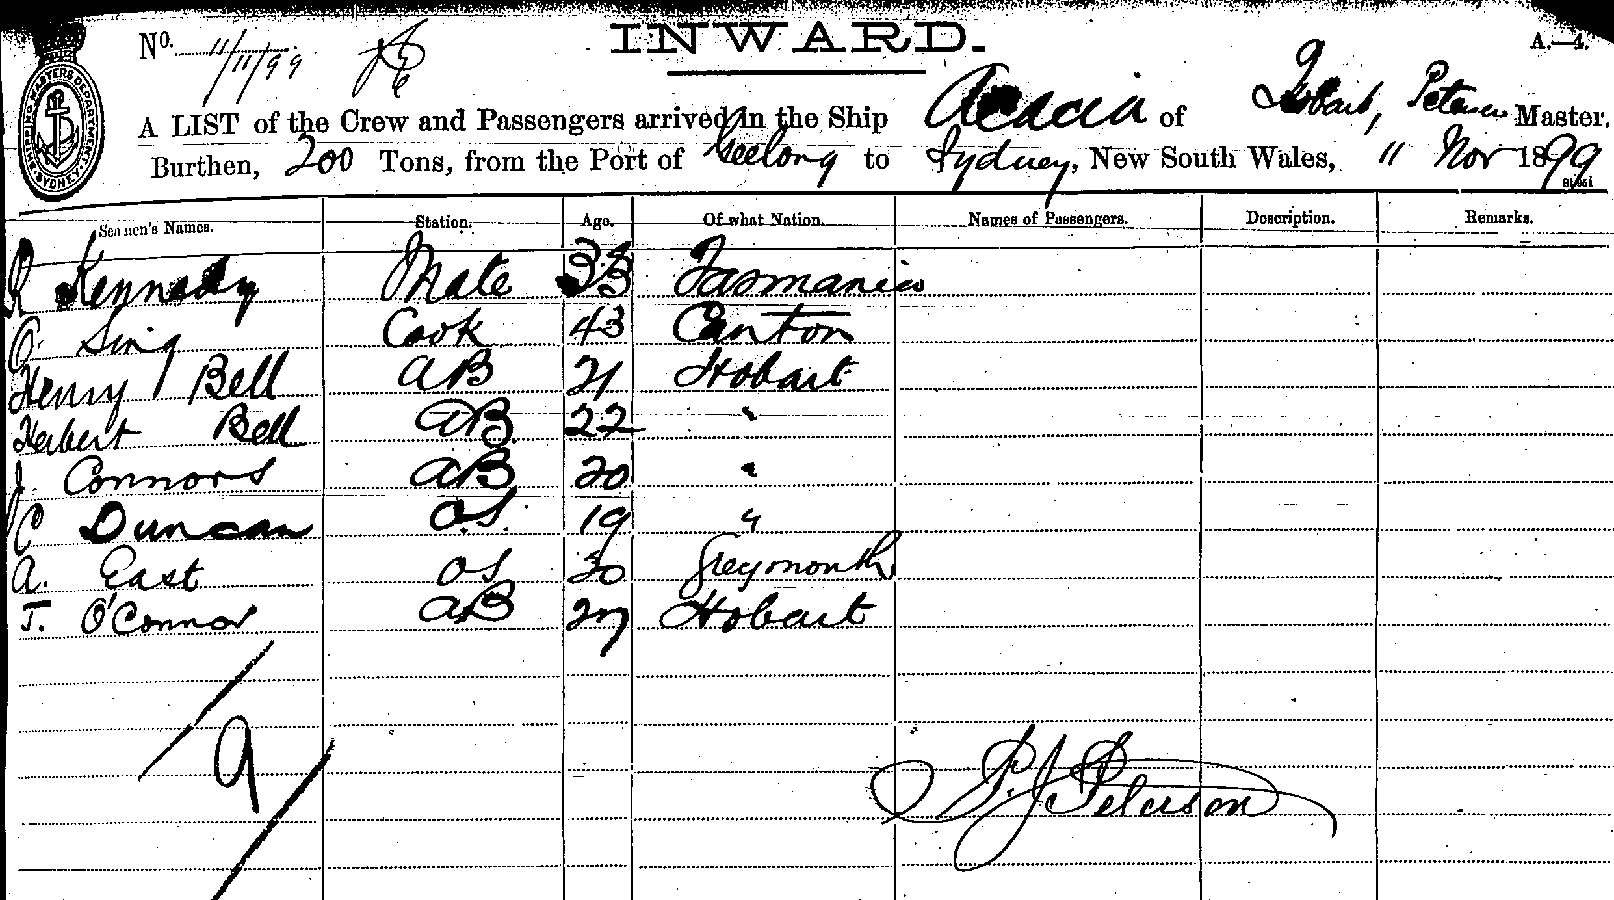 INWARD.
No. 11/11/99
A.—4.
A LIST of the Crew and Passengers arrived in the Ship Acacia of Hobart, Petersen Master,
Burthen, 200 Tons, from the Port of Geelong to Sydney, New South Wales, 11 Nov 1899
SHIPPING MASTERS DEPARTMENT SYDNEY
Seamen's Names. Station. Age. Of what Nation. Names of Passengers. Description. Remarks.
R Kennedy Mate 33 Tasmania
O. Sing Cook 43 Canton
Henry Bell AB 21 Hobart
Herbert Bell AB 22 "
J. Connors AB 20 "
C Duncan O.S. 19 "
A. East OS 30 Greymouth
T. O'Connor AB 27 Hobart
9
P. J. Peterson